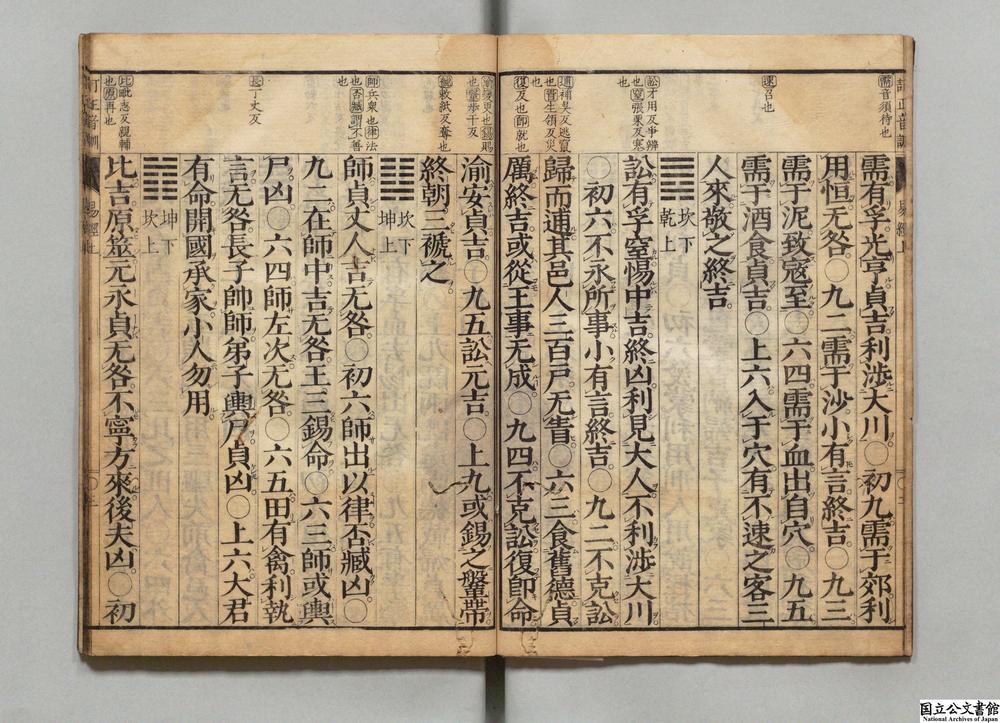 需音須待也
速召也
訟才用反爭辨
逋補吳反逃竄
復反也即就也
也鞶步干反
褫敕紙反奪也
師兵衆也律法
也
長丁丈反
比毗志反親輔
也原再也
需有孚光亨貞吉利涉大川〇初九需于郊利
用恒无咎〇九二需于沙小有言終吉〇九三
需于泥致寇至〇六四需于血出自穴〇九五
需于酒食貞吉〇上六入于穴有不速之客三
人來敬之終吉
坎下
乾上
訟有孚窒惕中吉終凶利見大人不利涉大川
〇初六不永所事小有言終吉〇九二不克訟
歸而逋其邑人三百戸无眚〇六三食舊德貞
厲終吉或從王事无成〇九四不克訟復即命
渝安貞吉〇九五訟元吉〇上九或錫之鞶帶
終朝三褫之
坎下
坤上
師貞丈人吉无咎〇初六師出以律否臧凶〇
九二在師中吉无咎王三錫命〇六三師或輿
尸凶〇六四師左次无咎〇六五田有禽利執
言无咎長子帥師弟子輿尸貞凶〇上六大君
有命開國承家小人勿用
坤下
坎上
比吉原筮元永貞无咎不寧方來後夫凶〇初
国立公文書館
National Archives of Japan